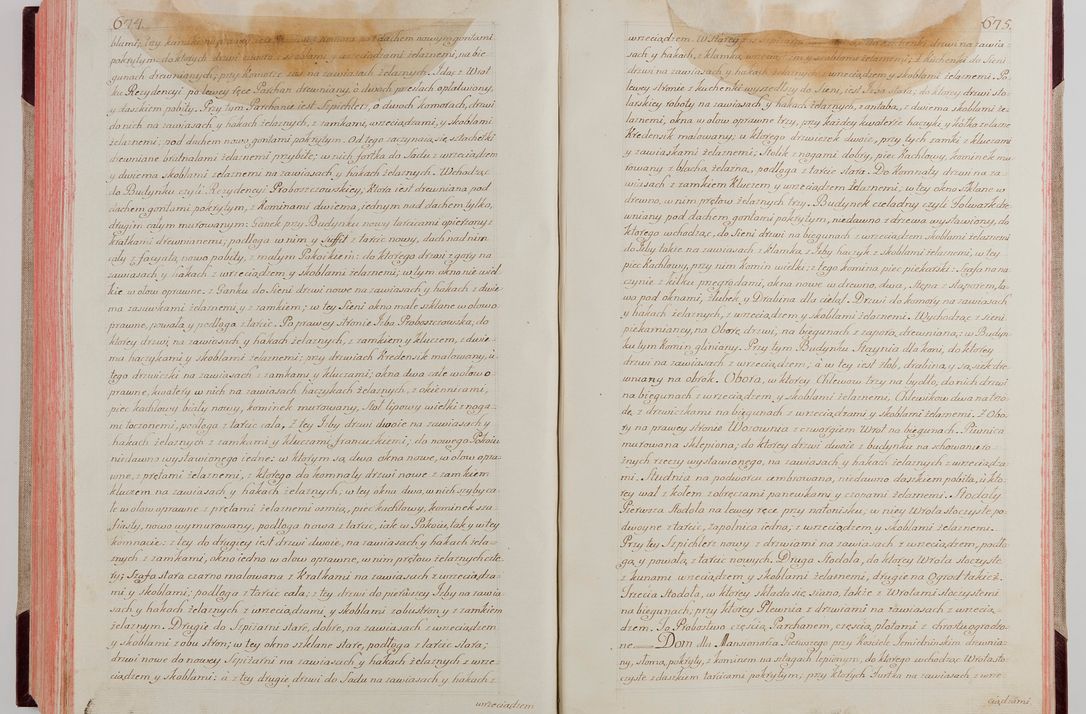 674.
pokrytym: do ktorych drzwi
gunach drewnianych, przy Komorze zas na zawiasach żelaznych. Idąc z Wrot
ku Rezydencyi po lewey ręce Parchan drewniany, o dwoch przęsłach opłatwiony,
y daszkiem pobity. Przy tym Parchanie iest Szpichlerz, o dwoch komorach, drzwi
do nich na zawiasach y hakach żelaznych, z zamkami, wrzeciądzami, y Skoblami
żelaznemi; pod dachem nowo gontami pokrytym. Od tego zaczynaią się sztachetki
drewniane bratnalami żelaznemi przybite; w nich fortka do Sadu z wrzeciądzem
y dwiema skoblami żelaznemi na zawiasach y hakach żelaznych. Wchodząc
do Budynku czyli Rezydencyi Proboszczowskiey, ktora iest drewniana pod
dachem gontami pokrytym, z Kominami dwiema, iednym nad dachem tylko,
drugim całym murowanym: Ganek przy Budynku nowy tarcicami opierzony z
kratkami drewnianemi; podłoga w nim y suffit z tarcic nowy, dach nad nim
cały z facyatą nowo pobity, z małym Pokoikiem: do ktorego drzwi z gory na
zawiasach y hakach z wrzeciądzem y skoblami żelaznemi; w tym okno nie wiel-
kie w ołow oprawne. z Ganku do Sieni drzwi nowe na zawiasach y hakach z dwie
ma zasuwkami żelaznemi, y z zamkiem; w tey Sieni okno małe szklane w ołow o-
prawne, powała y podłoga z tarcic. Po prawey stronie Izba Proboszczowska, do
ktorey drzwi, na zawiasach y hakach żelaznych, z zamkiem y kluczem, z dwie-
ma haczykami y Skoblami żelaznemi; przy drzwiach Kredensik malowany, u
tego drzwiczki na zawiasach z zamkami y kluczami; okna dwa całe w ołow o-
prawne, kwatery w nich na zawiasach haczykach żelaznych, z okiennicami,
piec kachlowy biały nowy, kominek murowany, Stoł lipowy wielki z noga-
mi toczonemi, podłoga z tarcic cała, z tey Izby drzwi dwoie na zawiasach y
hakach żelaznych z zamkami y kluczami, francuzkiemi; do nowego Pokoiu
niedawno wystawionego iedne: w ktorym są dwa okna nowe, w ołow opra-
wne, z prętami żelaznemi, z ktorego do kamnaty drzwi nowe z zamkiem
kluczem na zawiasach y hakach żelaznych; w tey okna dwa, w nich szyby ca-
le w ołow oprawne z prętami żelaznemi osmią, piec kachlowy, kominek sza-
fiasty, nowo wymurowany, podłoga nowa z tarcic, iak w Pokoiu, tak y w tey
komnacie: z tey do drugiey iest drzwi dwoie, na zawiasach y hakach żela-
znych z zamkami, okno iedno w ołow oprawne, w nim prętow żelaznych czte-
ry; Szafa stara czarno malowana z Kratkami na zawiasach z wrzeciądza-
mi y Skoblami; podłoga z tarcic cała; z tey drzwi do pierwszey Izby na zawia-
sach y hakach żelaznych z wrzeciądzami y Skoblami z obu stron y z zamkiem
żelaznym. Drugie do Szpiżarni stare, dobre, na zawiasach z wrzeciądzem
y skoblami z obu stron; w tey okno szklane stare, podłoga z tarcic stara;
drzwi nowe do nowey Szpiżarni na zawiasach y hakach żelaznych z wrze-
ciądzem y Skoblami: a z tey drugie drzwi do Sadu na zawiasach y hakach z
wrzeciądzem
675.
wrzeciądzem. W starey
sach y hakach, z klamką, wrzeciądzem y skoblami żelaznemi; z kuchenki do Sieni
drzwi na zawiasach y hakach żelaznych z wrzeciądzem y skoblami żelaznemi. Po
lewey stronie z kuchenki wyszedłszy do Sieni, iest Izba stara, do ktorey drzwi sto-
larskiey roboty na zawiasach y hakach żelaznych, z antabą, z dwiema skoblami że-
laznemi, okna w ołow oprawne trzy, przy każdey kwaterze haczyki y kołka żelazne
Kredensik malowany; w ktorego drzwiczek dwoie, przy tych zamki z kluczami
y zawiaskami żelaznemi; Stolik z nogami dobry, piec Kachlowy, kominek mu-
rowany z blachą żelazną, podłoga z tarcic stara. Do Komnaty drzwi na za-
wiasach z zamkiem Kluczem y wrzeciądzem żelaznemi; w tey okno Szklane w
drewno, w nim prętow żelaznych trzy. Budynek czeladny czyli Folwark dre-
wniany pod dachem gontami pokrytym, niedawno z drzewa wystawiony, do
ktorego wchodząc, do Sieni drzwi na biegunach z wrzeciądzem skoblami żelaznemi
do Izby takie na zawiasach z klamką, z Izby haczyk z Skoblami żelaznemi, w tey
piec Kachlowy, przy nim Komin wielki: z tego komina piec piekarski: Szafa na na-
czynie z kilku przegrodami, okna nowe w drewno, dwa, Stępa z stąporem, ła-
wa pod oknami, Żłobek, y Drabina dla cieląt. Drzwi do komory na zawiasach
y hakach żelaznych, z wrzeciądzem y Skoblami żelaznemi. Wychodząc z sieni
piekarnianey, na Oborę drzwi, na biegunach z zaporą drewnianą; w Budyn-
ku tym Komin gliniany. Przy tym Budynku Staynia dla koni, do ktorey
drzwi na zawiasach z wrzeciądzem; a w tey iest żłob, drabina, y sąsiek dre-
wniany na obrok. Obora, w ktorey Chlewow trzy na bydło, do nich drzwi
na biegunach z wrzeciądzem y Skoblami żelaznemi, Chlewikow dwa na trzo-
dę, z drzwiczkami na biegunach z wrzeciądzami y Skoblami żelaznemi. Z Obo-
ry na prawey stronie Wozownia z czworgiem Wrot na biegunach. Piwnica
murowana Sklepiona; do ktorey drzwi dwoie z budynku na schowanie ro-
żnych rzeczy wystawionego, na zawiasach y hakach żelaznych z wrzeciądza-
mi. Studnia na podworcu cembrowana, niedawno daszkiem pobita, u kto-
rey wał z kołem z obręczami panewkami y czopami żelaznemi. Stodoły
Pierwsza Stodoła na lewey ręce przy natonisku, w niey Wrota stoczyste po-
dwoyne z tarcic, zapolnica iedna; z wrzeciądzem y Skoblami żelaznemi.
Przy tey Szpichlerz nowy z drzwiami na zawiasach z wrzeciądzem, podło-
gą y powałą z tarcic nowych. Druga Stodoła, do ktorey Wrota stoczyste
z kunami wrzeciądzem y Skoblami żelaznemi, drugie na Ogrod takież.
Trzecia Stodoła, w ktorey składa się siano, także z Wrotami stoczystemi
na biegunach; przy ktorey Plewnia z drzwiami na zawiasach z wrzecią-
dzem. To Probostwo częścią Parchanem, częścią płotami z chrostu ogrodzo-
ne. Dom dla Mansionarza Pierwszego przy Kościele Imielnińskim drewnia-
ny, słomą pokryty, z kominem na sztagach lepionym, do ktorego wchodząc Wrota sto-
czyste z daszkiem tarcicami pokrytym; przy ktorych furtka na zawiasach z wrze-
ciądzami.